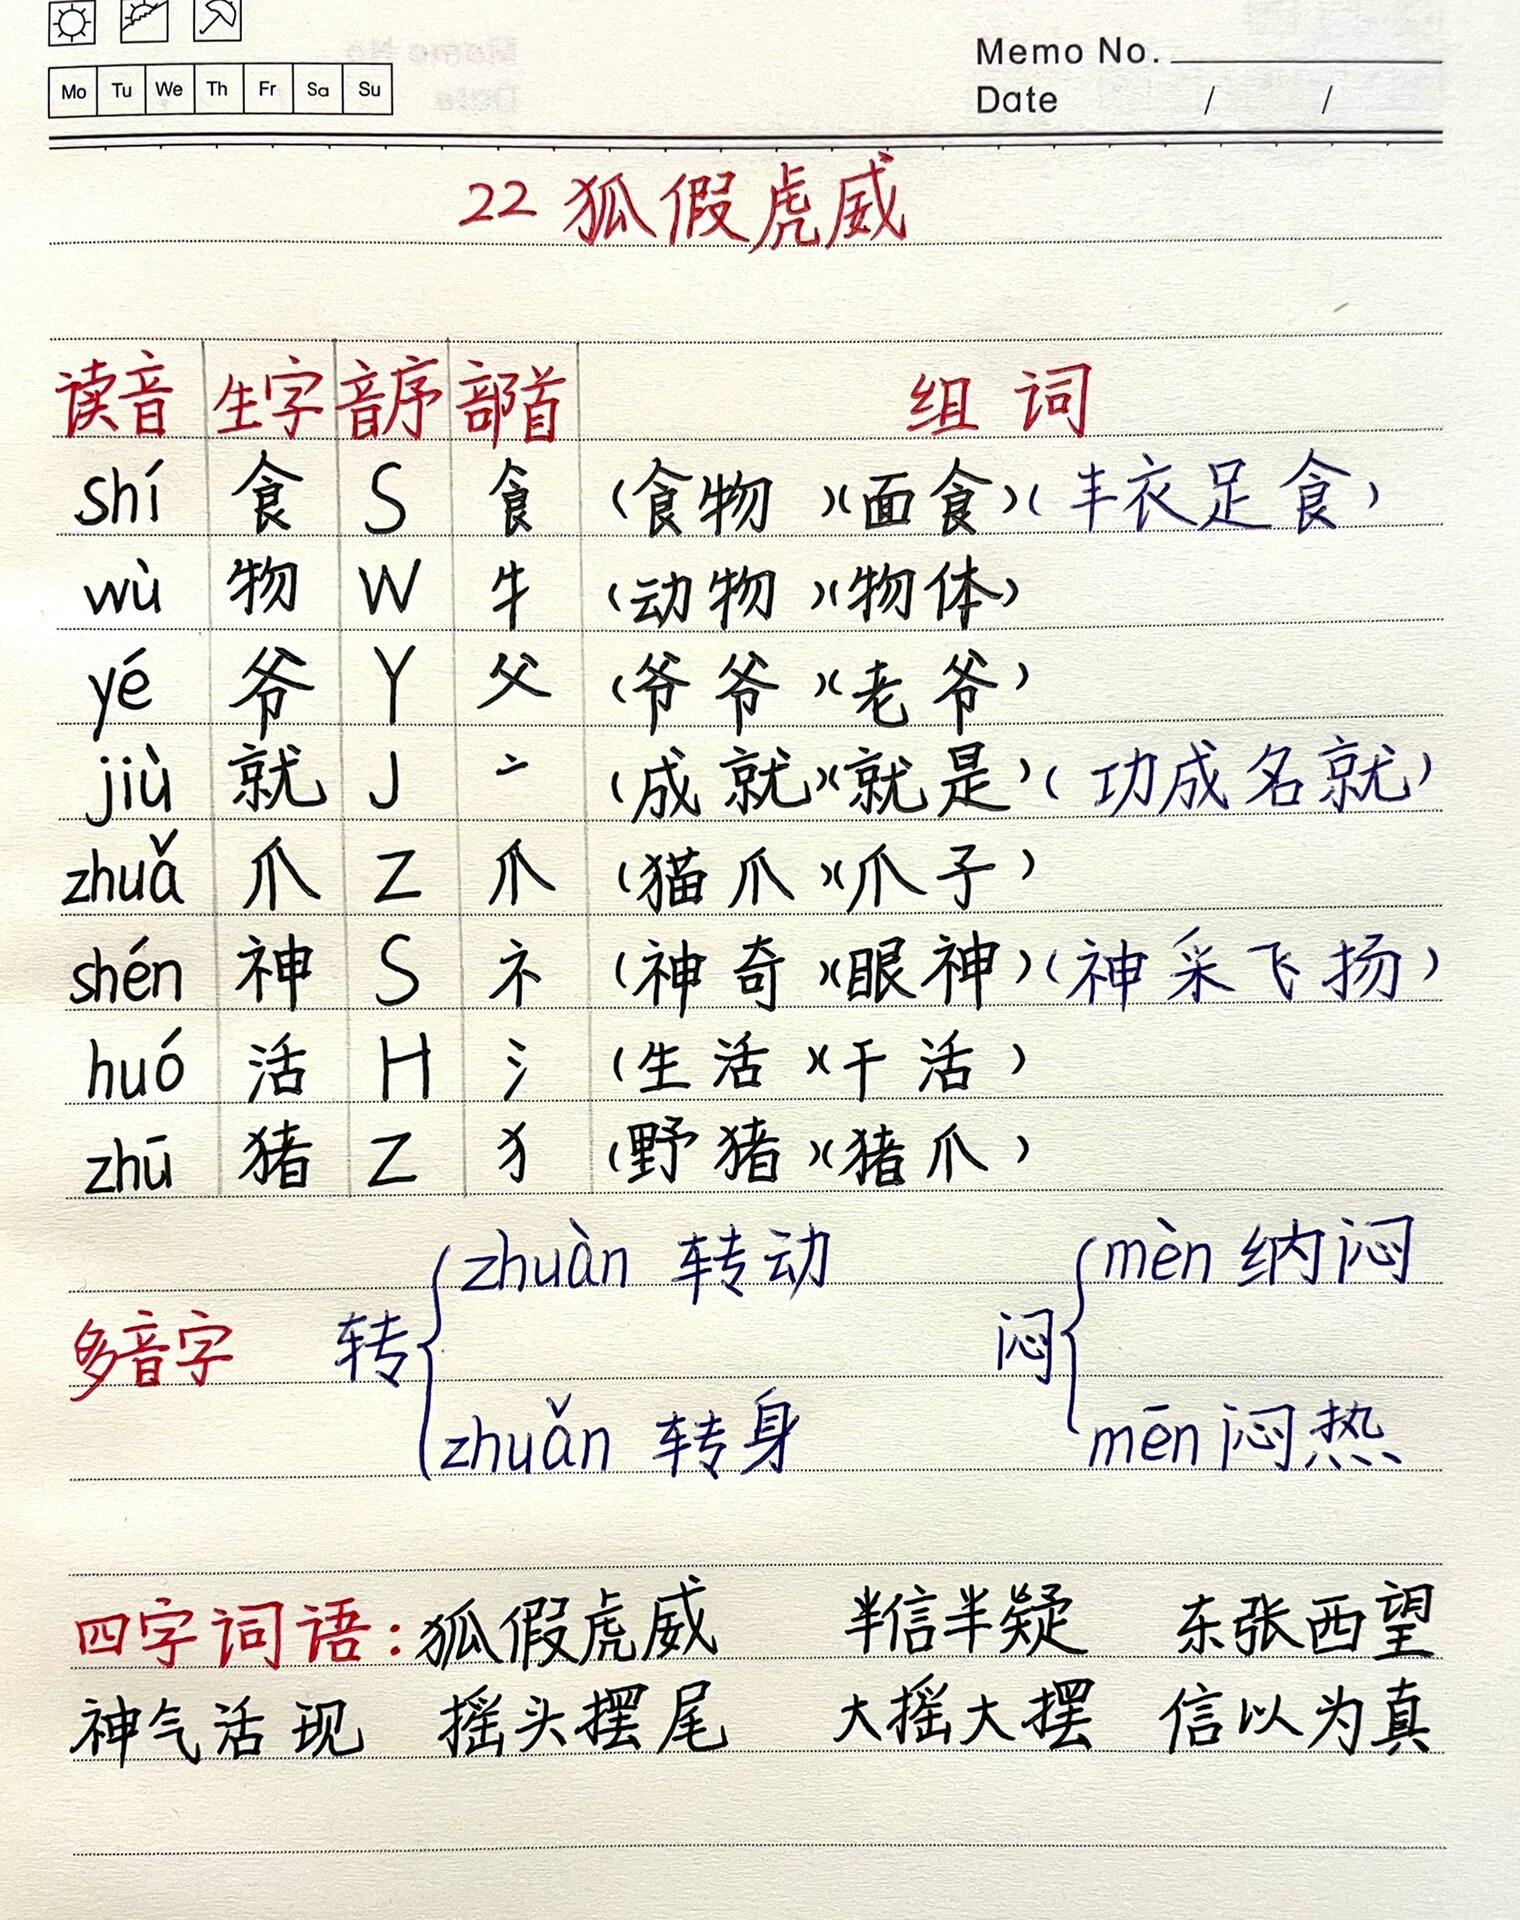 Memo No.
Mo Tu We Th Fr Sa Su
Date / /
22 狐假虎威
读音 生字 音序 部首 组词
shí 食 S 食 (食物)(面食)(丰衣足食)
wù 物 W 牜 (动物)(物体)
yé 爷 Y 父 (爷爷)(老爷)
jiù 就 J 亠 (成就)(就是)(功成名就)
zhuǎ 爪 Z 爪 (猫爪)(爪子)
shén 神 S 礻 (神奇)(眼神)(神采飞扬)
huó 活 H 氵 (生活)(干活)
zhū 猪 Z 犭 (野猪)(猪爪)
zhuàn 转动 mèn 纳闷
多音字 转 闷
zhuǎn 转身 mēn 闷热
四字词语:狐假虎威 半信半疑 东张西望
神气活现 摇头摆尾 大摇大摆 信以为真